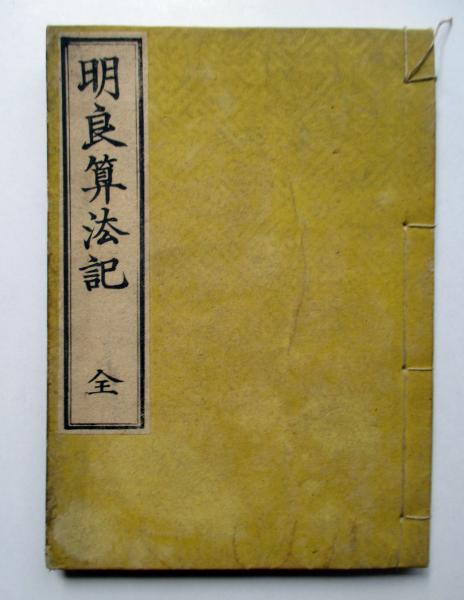 明良算法記
全